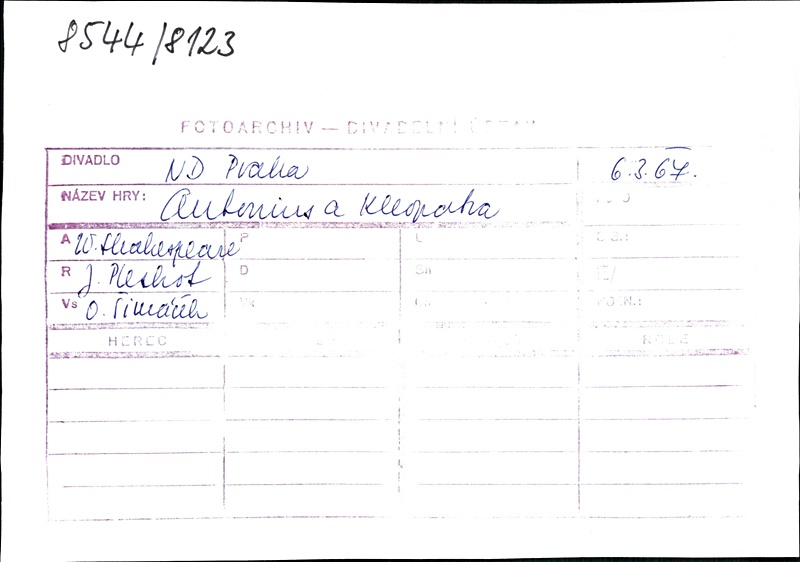 8544/8123
FOTOARCHIV — DIVADELNÍ ÚSTAV
DIVADLO ND Praha 6.3.67.
NÁZEV HRY: Antonius a Kleopatra
A W. Shakespeare P
R J. Pleskot D
Vs O. Šimáček
HEREC ROLE